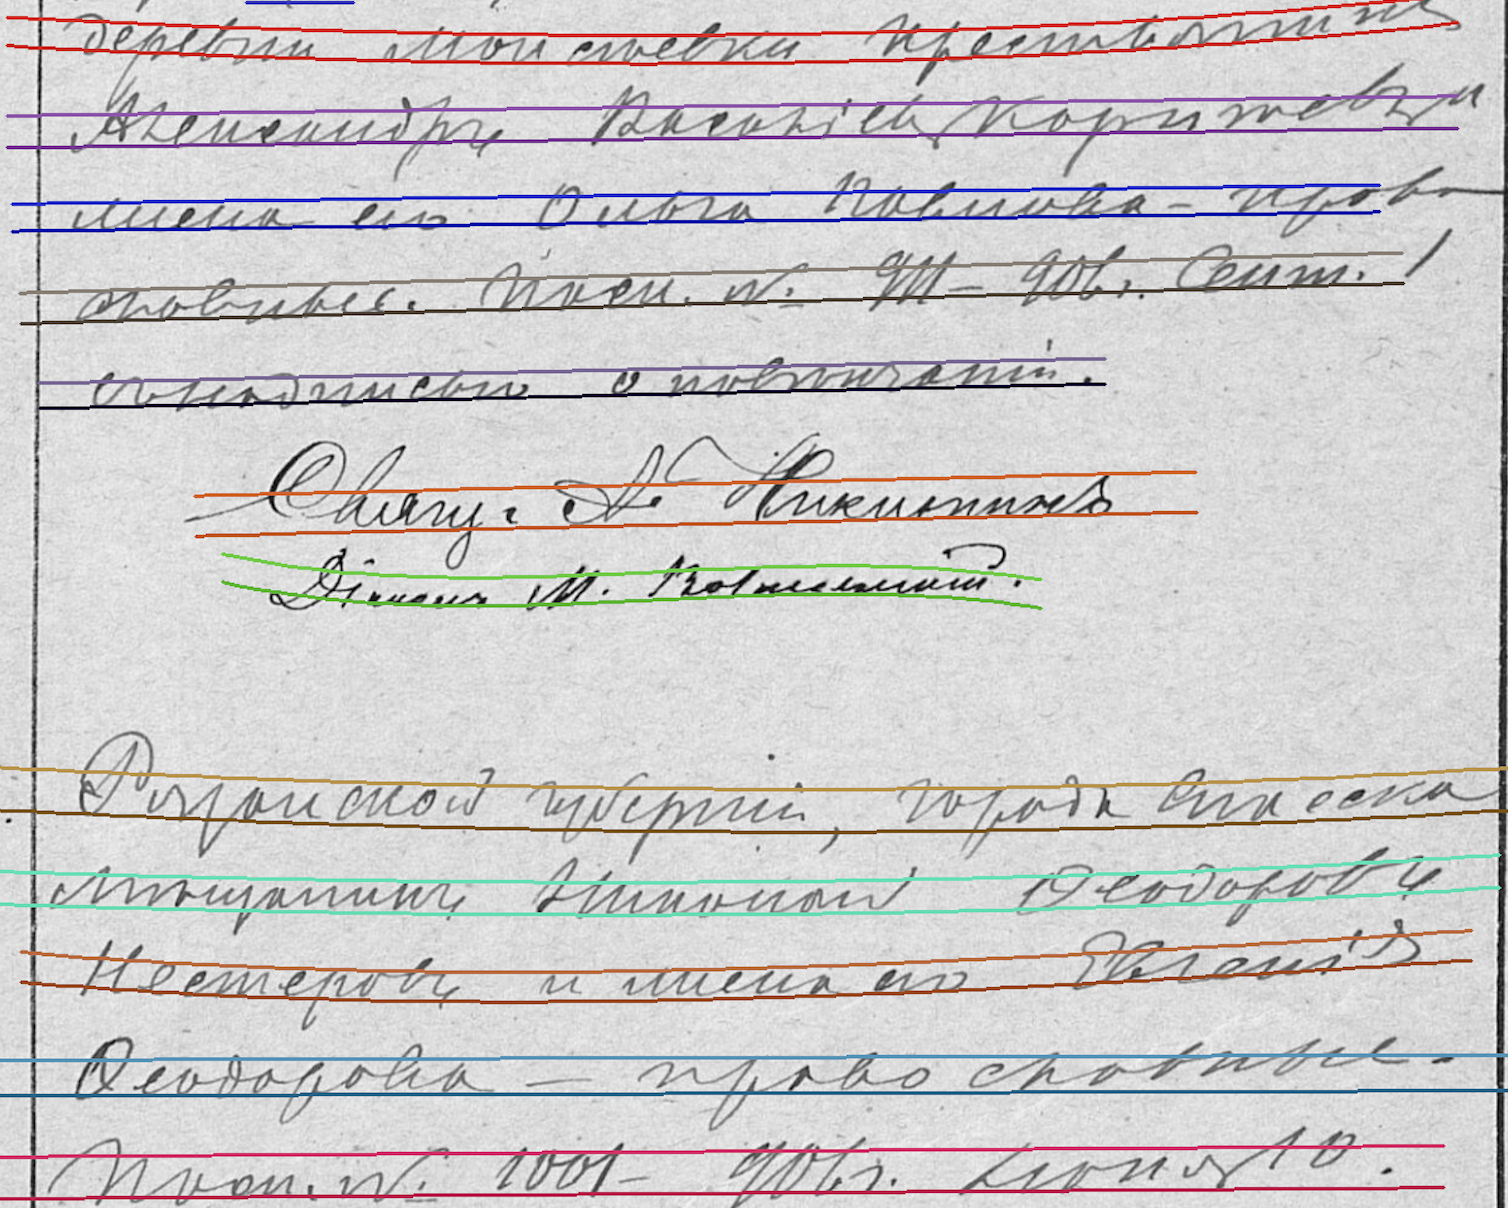 деревни Моисеевки крестьянинъ
Александръ Васильевъ
жена его Ольга Павлова - право
славные. Пасп. №. 911 - 906 г. Сент. 1
съ надписью о повѣнчаніи.
Свящ. А. Никитинъ
Діаконъ М.
Рязанской губерніи, города Спасска
мѣщанинъ Николай Ѳеодоровъ
Нестеровъ и жена его Евгенія
Ѳеодорова — православные.
Пасп. №. 1001 - 906 г. Іюня 10.